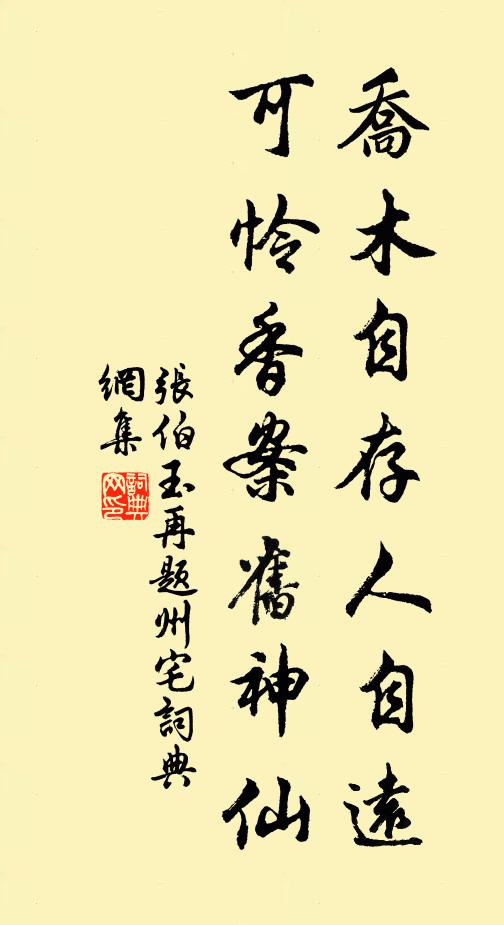 喬木自存人自遠
可怜香案舊神仙
張伯玉再题州宅詞典
網集
詞典
网印